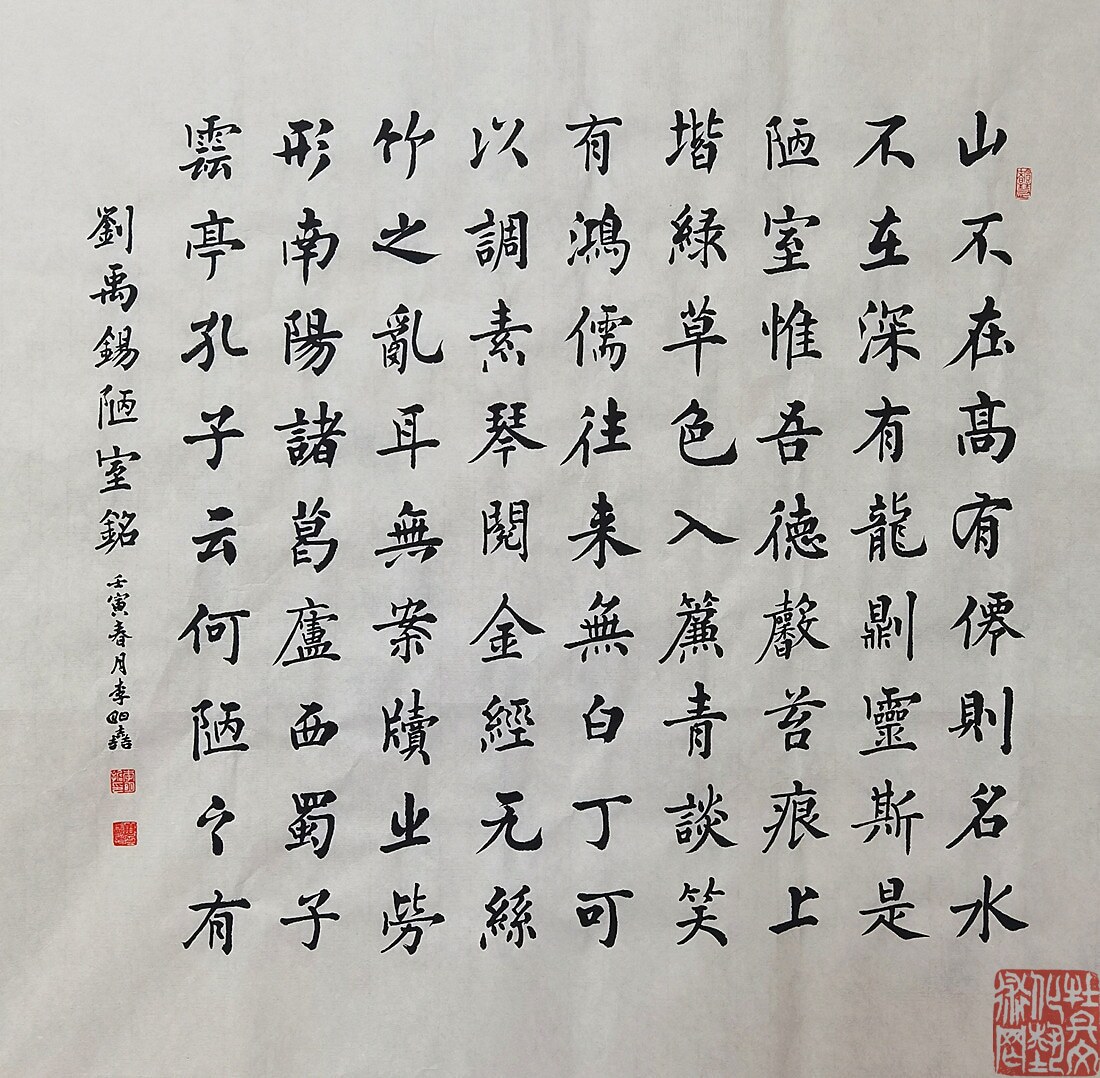 山不在髙有僊則名水
不在深有龍𠟭靈斯是
陋室惟吾德馨苔痕上
堦緑草色入簾青談笑
有鴻儒往来無白丁可
以調素琴閱金經无絲
竹之亂耳無案牘之勞
形南陽諸葛廬西蜀子
雲亭孔子云何陋之有
劉禹錫陋室銘 壬寅春月李
牡丹文化藝術网